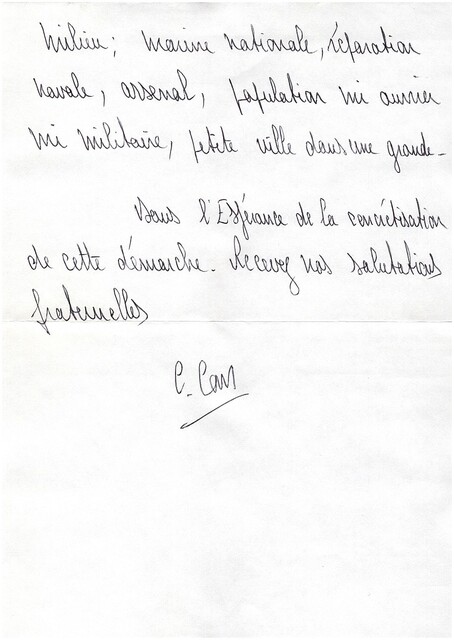 milieu; marine nationale, réparation
navale, arsenal, population mi ouvrier
mi militaire, petite ville dans une grande-
Dans l'Espérance de la concrétisation
de cette démarche. Recevez nos salutations
fraternelles
C.